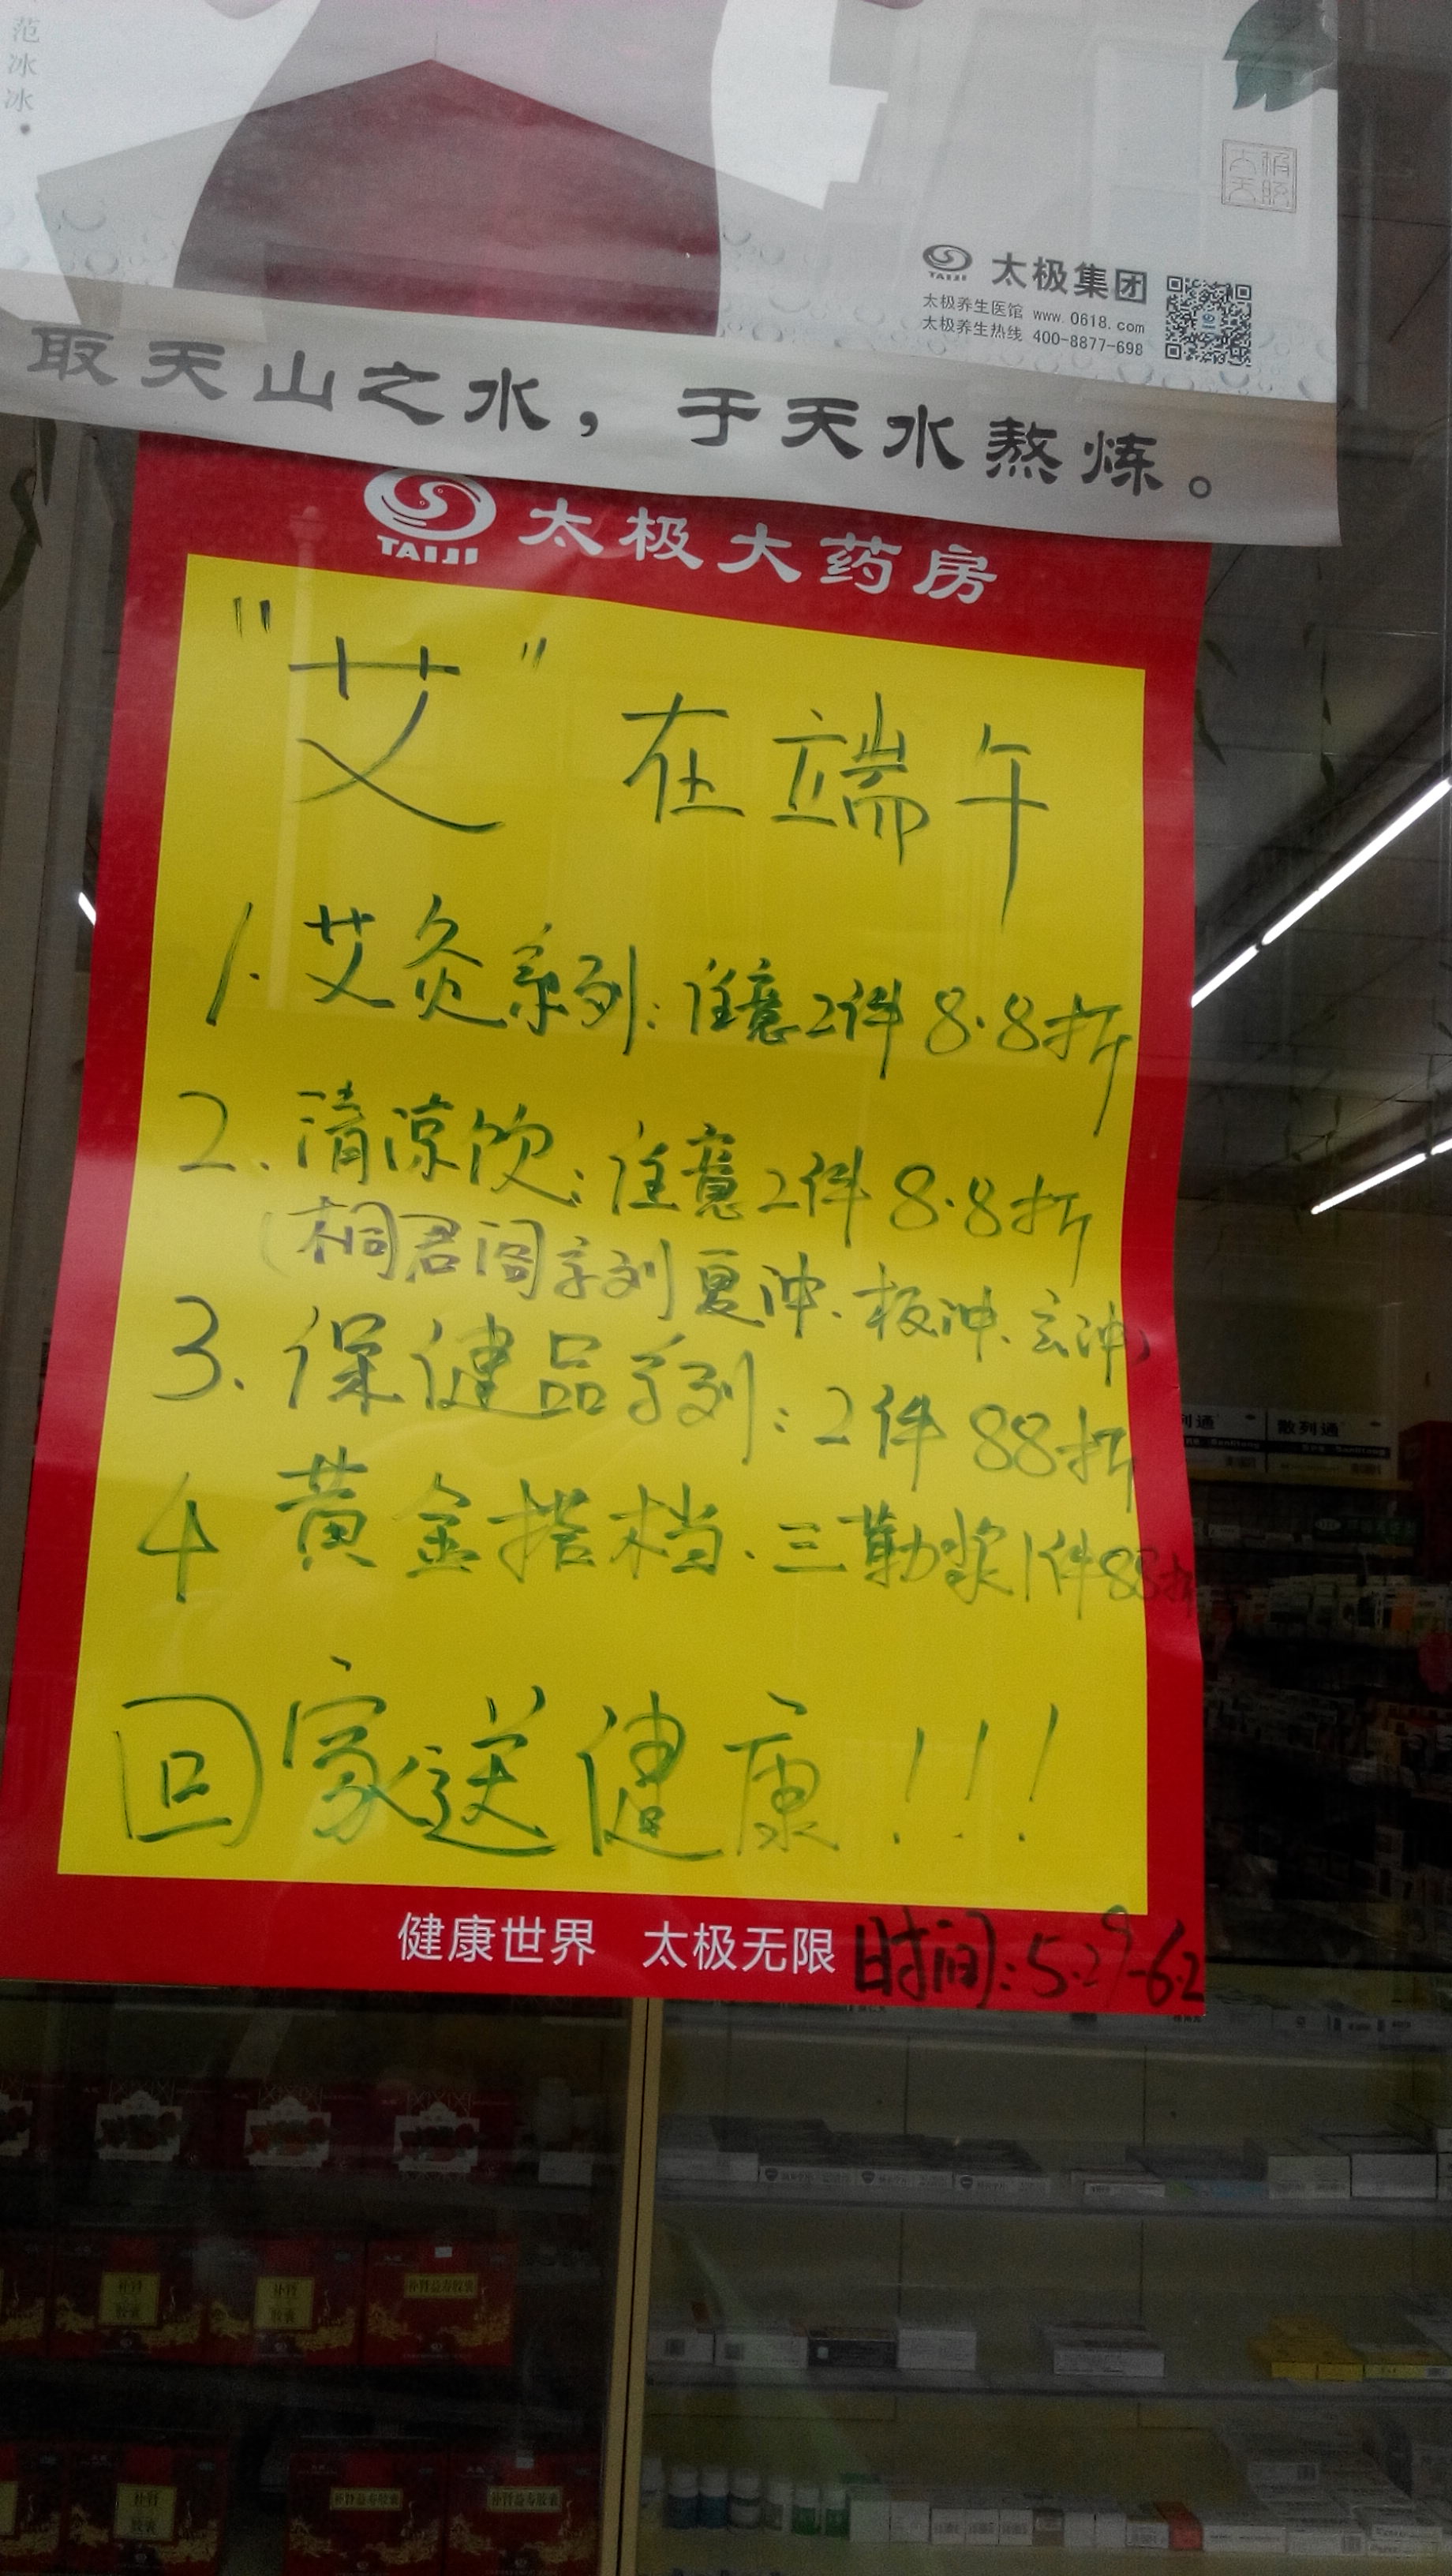 范冰冰
太极集团
TAIJI
太极养生医馆 www.0618.com
太极养生热线 400-8877-698
取天山之水，于天水熬炼。
TAIJI 太极大药房
"艾"在端午
1.艾灸系列:任意2件8.8折
2.清凉饮:任意2件8.8折
(桐君阁系列夏冲.板冲.玄冲)
3.保健品系列:2件88折
4 黄金搭档.三勒浆1件88折
回家送健康!!!
健康世界 太极无限
时间:5.29-6.2
列通
散列通
补肾益寿胶囊
补肾益寿胶囊
补肾益寿胶囊